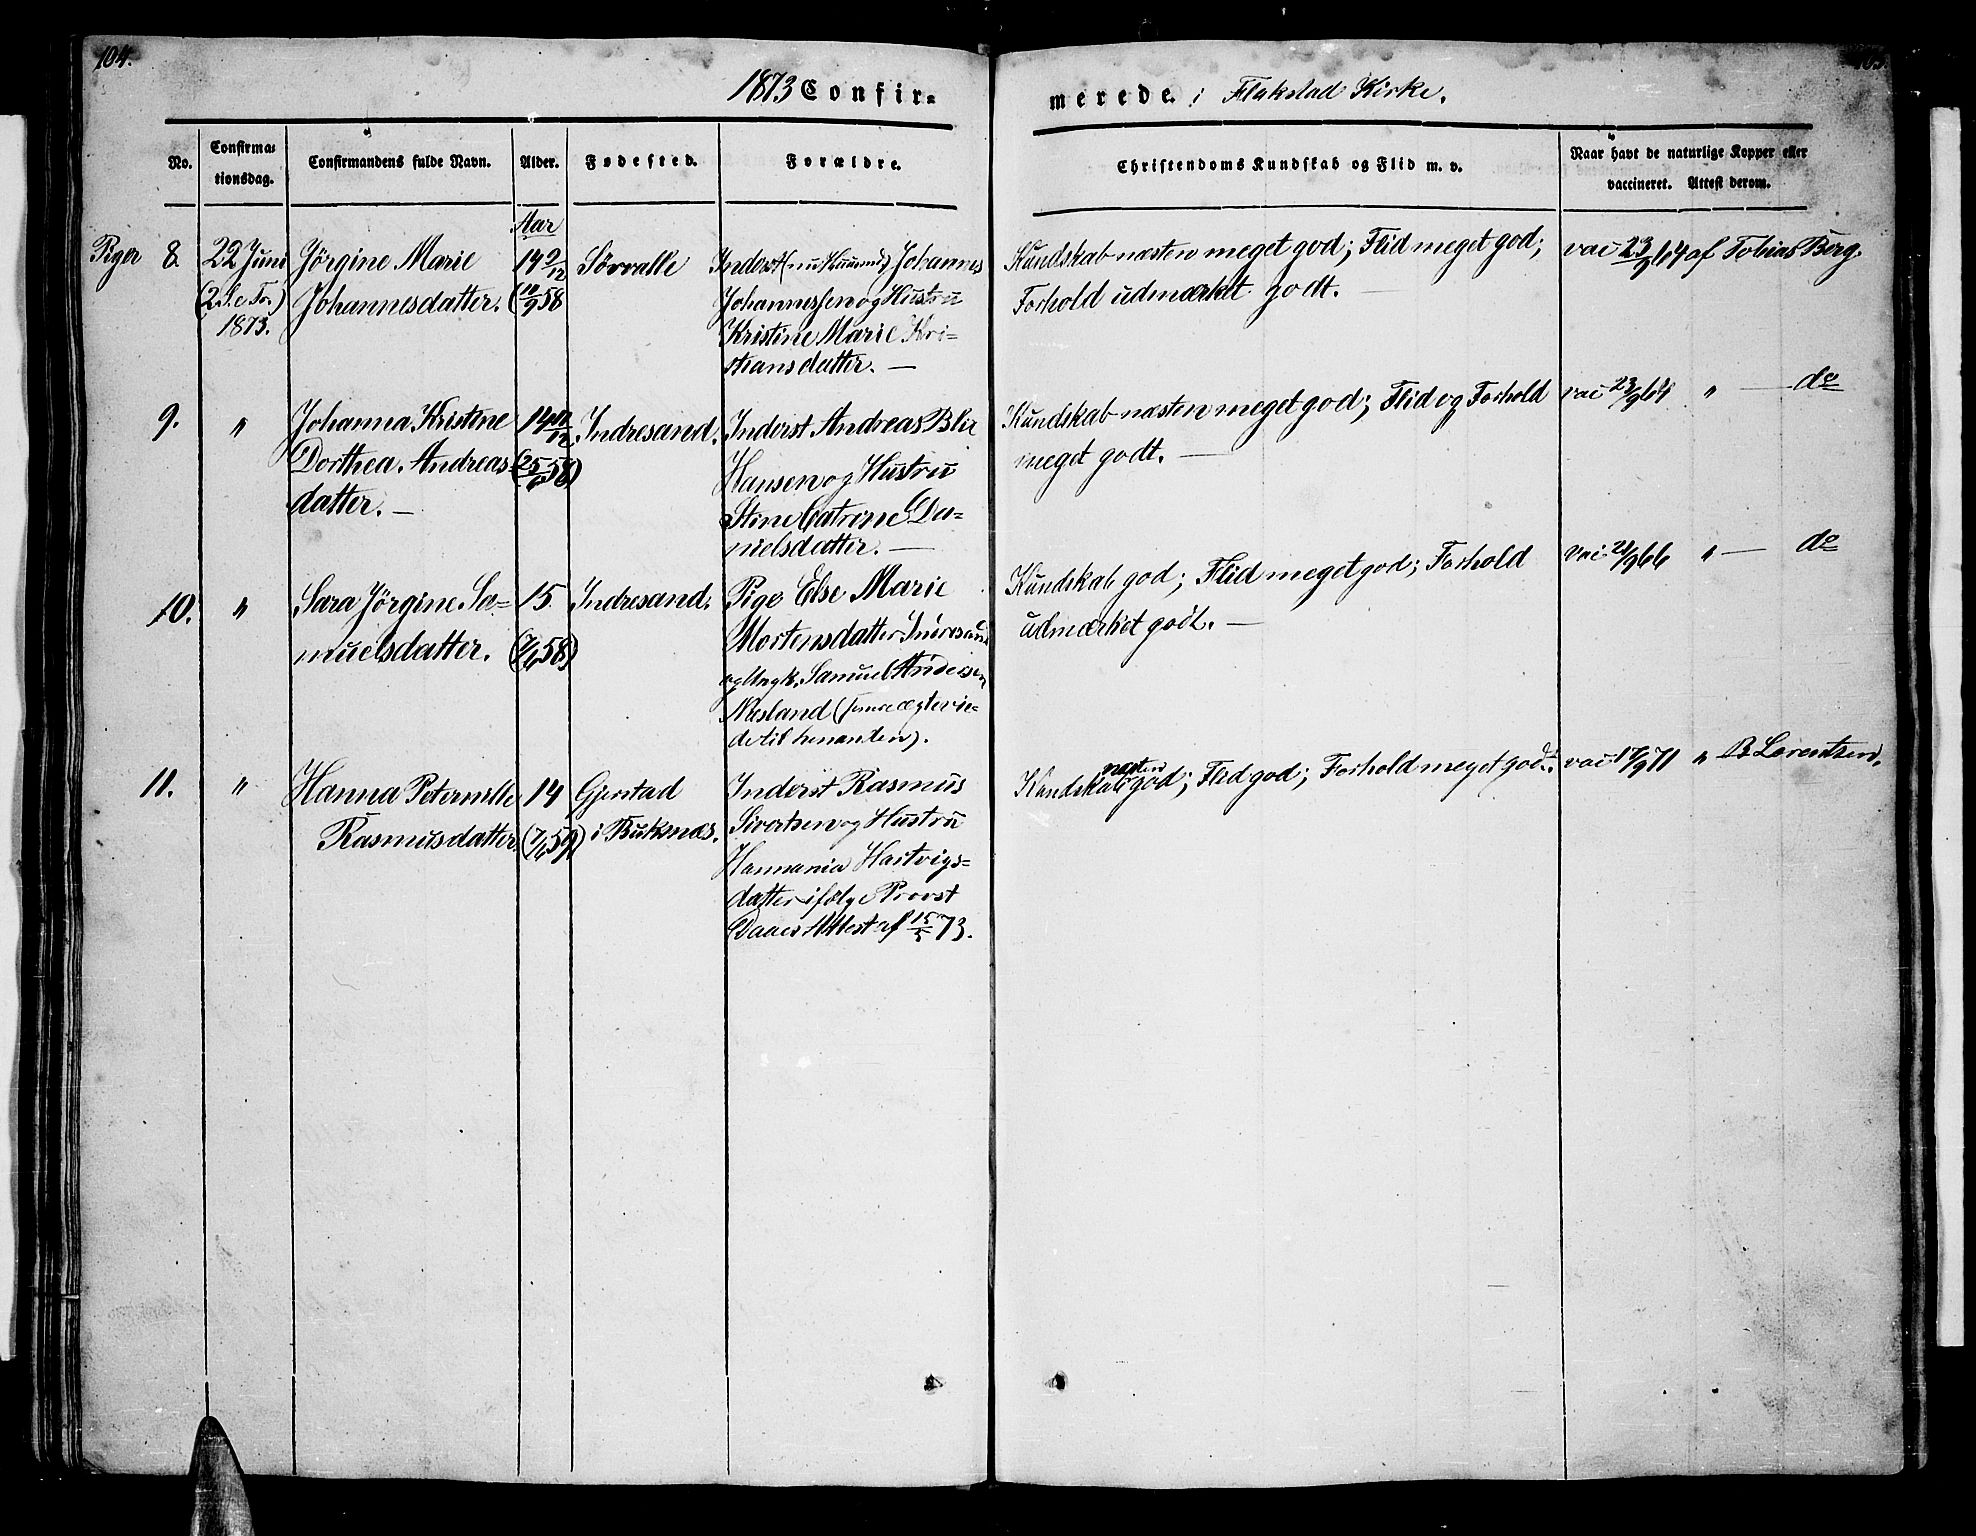 104.
1873 Confir-
merede. i Flakstad Kirke.
No.
Confirma-
tionsdag.
Confirmandens fulde Navn.
Alder.
Fødested.
Forældre.
Christendoms Kundskab og Flid m. v.
Naar havt de naturlige Kopper eller
vaccineret. Attest derom.
Aar
Piger 8.
22 Juni
(2 S. e. Tr.)
1873.
Jørgine Marie
Johannesdatter.
14 9/12
(10/9 58
Sørvalle
Inderst (nu Huusmd) Johannes
Johannessen og Hustru
Kristine Marie Kri-
stiansdatter. —
Kundskab næsten meget god; Flid meget god;
Forhold udmærket godt. —
vac 23/9 64 af Tobias Berg.
9.
"
Johanna Kristine
Dorthea Andreas-
datter. —
14
(25/6 58)
Indresand.
Inderst Andreas Blix
Hansen og Hustru
Stine Catrine Da-
nielsdatter. —
Kundskab næsten meget god; Flid og Forhold
meget godt. —
vac 23/9 64 " — do
10.
"
Sara Jørgine Sa-
muelsdatter.
15.
(7/6 58)
Indresand.
Pige Else Marie
Mortensdatter Indresand
og Ungk. Samuel Andersen
Næsland (senere ægtevie-
de til hinanden).
Kundskab god; Flid meget god; Forhold
udmærket godt. —
vac 2/9 66 " — do
11.
"
Hanna Peternille
Rasmusdatter.
14
(7/6 59)
Gjerstad
i Buksnæs.
Inderst Rasmus
Sivertsen og Hustru
Hannania Hartvigs-
datter ifølge Provst
Daaes Attest af 15/5 73.
næsten
Kundskab god; Flid god; Forhold meget godt.
vac 17/9 71 " B Lorentsen.